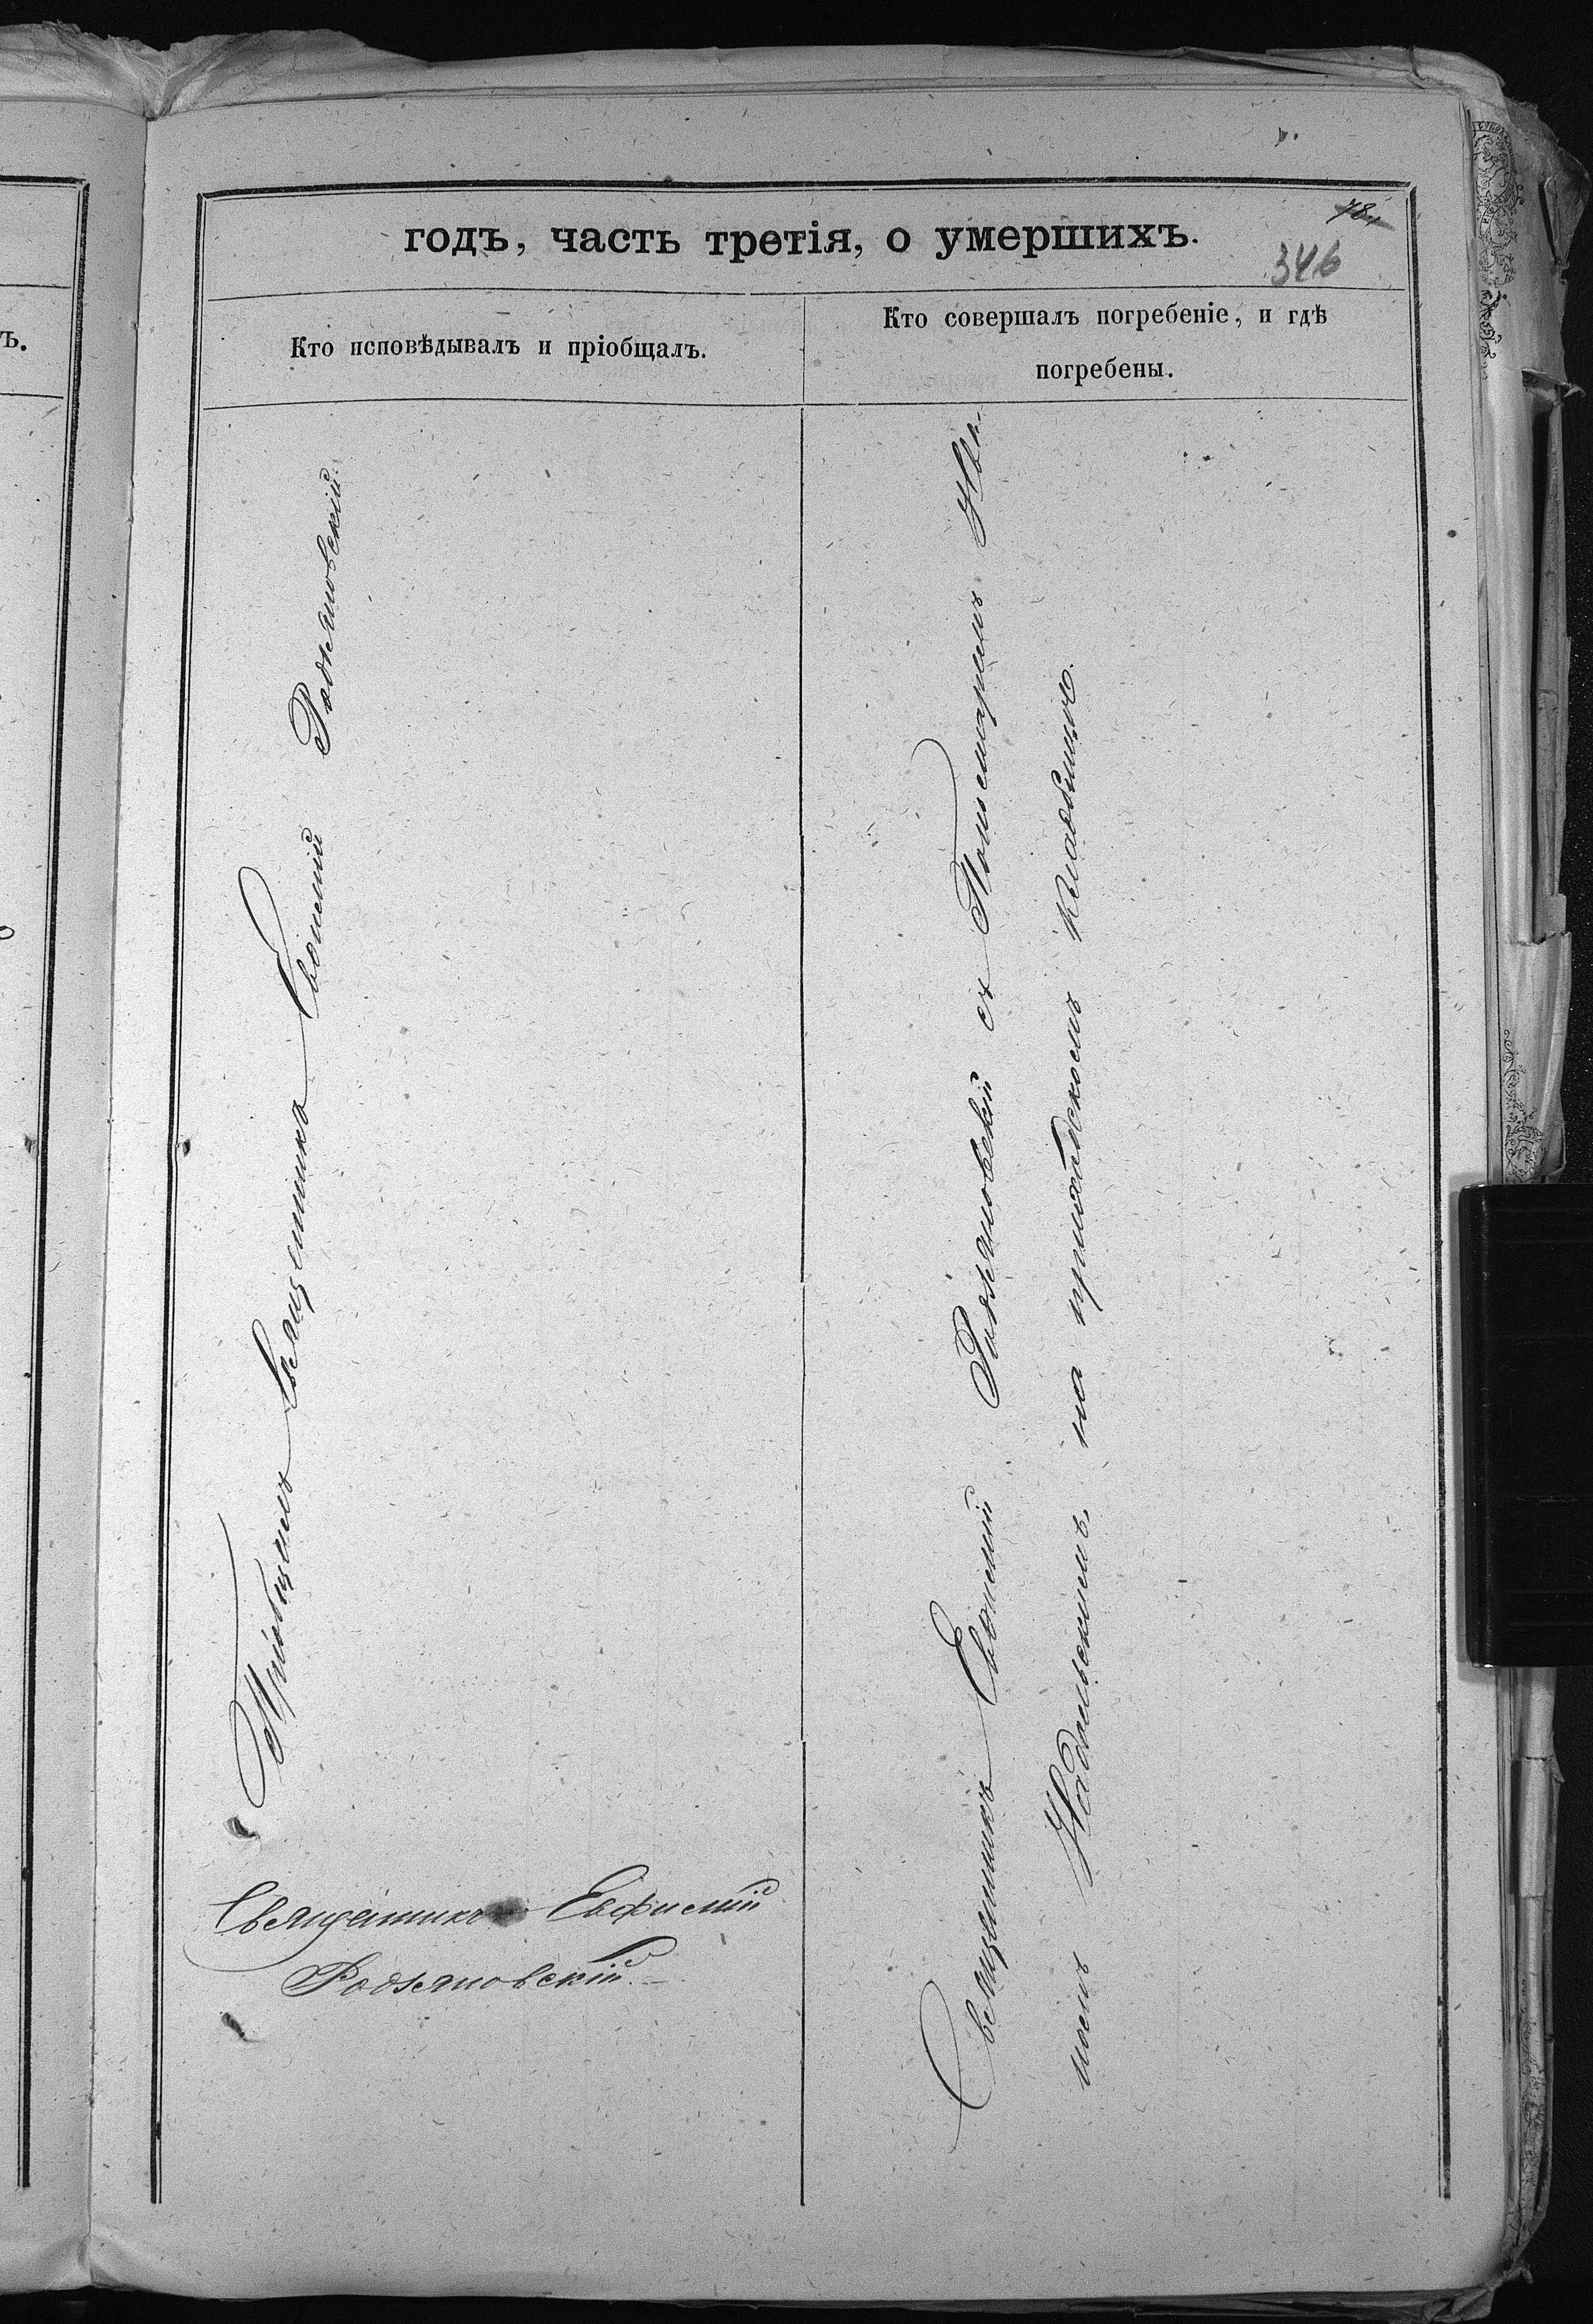 78.
годъ, часть третія, о умершихъ.
346
Кто исповѣдывалъ и пріобщалъ.
Кто совершалъ погребеніе, и гдѣ
погребены.
Пріобщалъ Священника Евфимій Родзяновскій.
Священникъ Евфимій
Родзяновскій.
Священникъ Евфимій Родзяновскій съ Пономаремъ
номъ Надольскимъ, на приходскомъ кладбищѣ.
ъ.